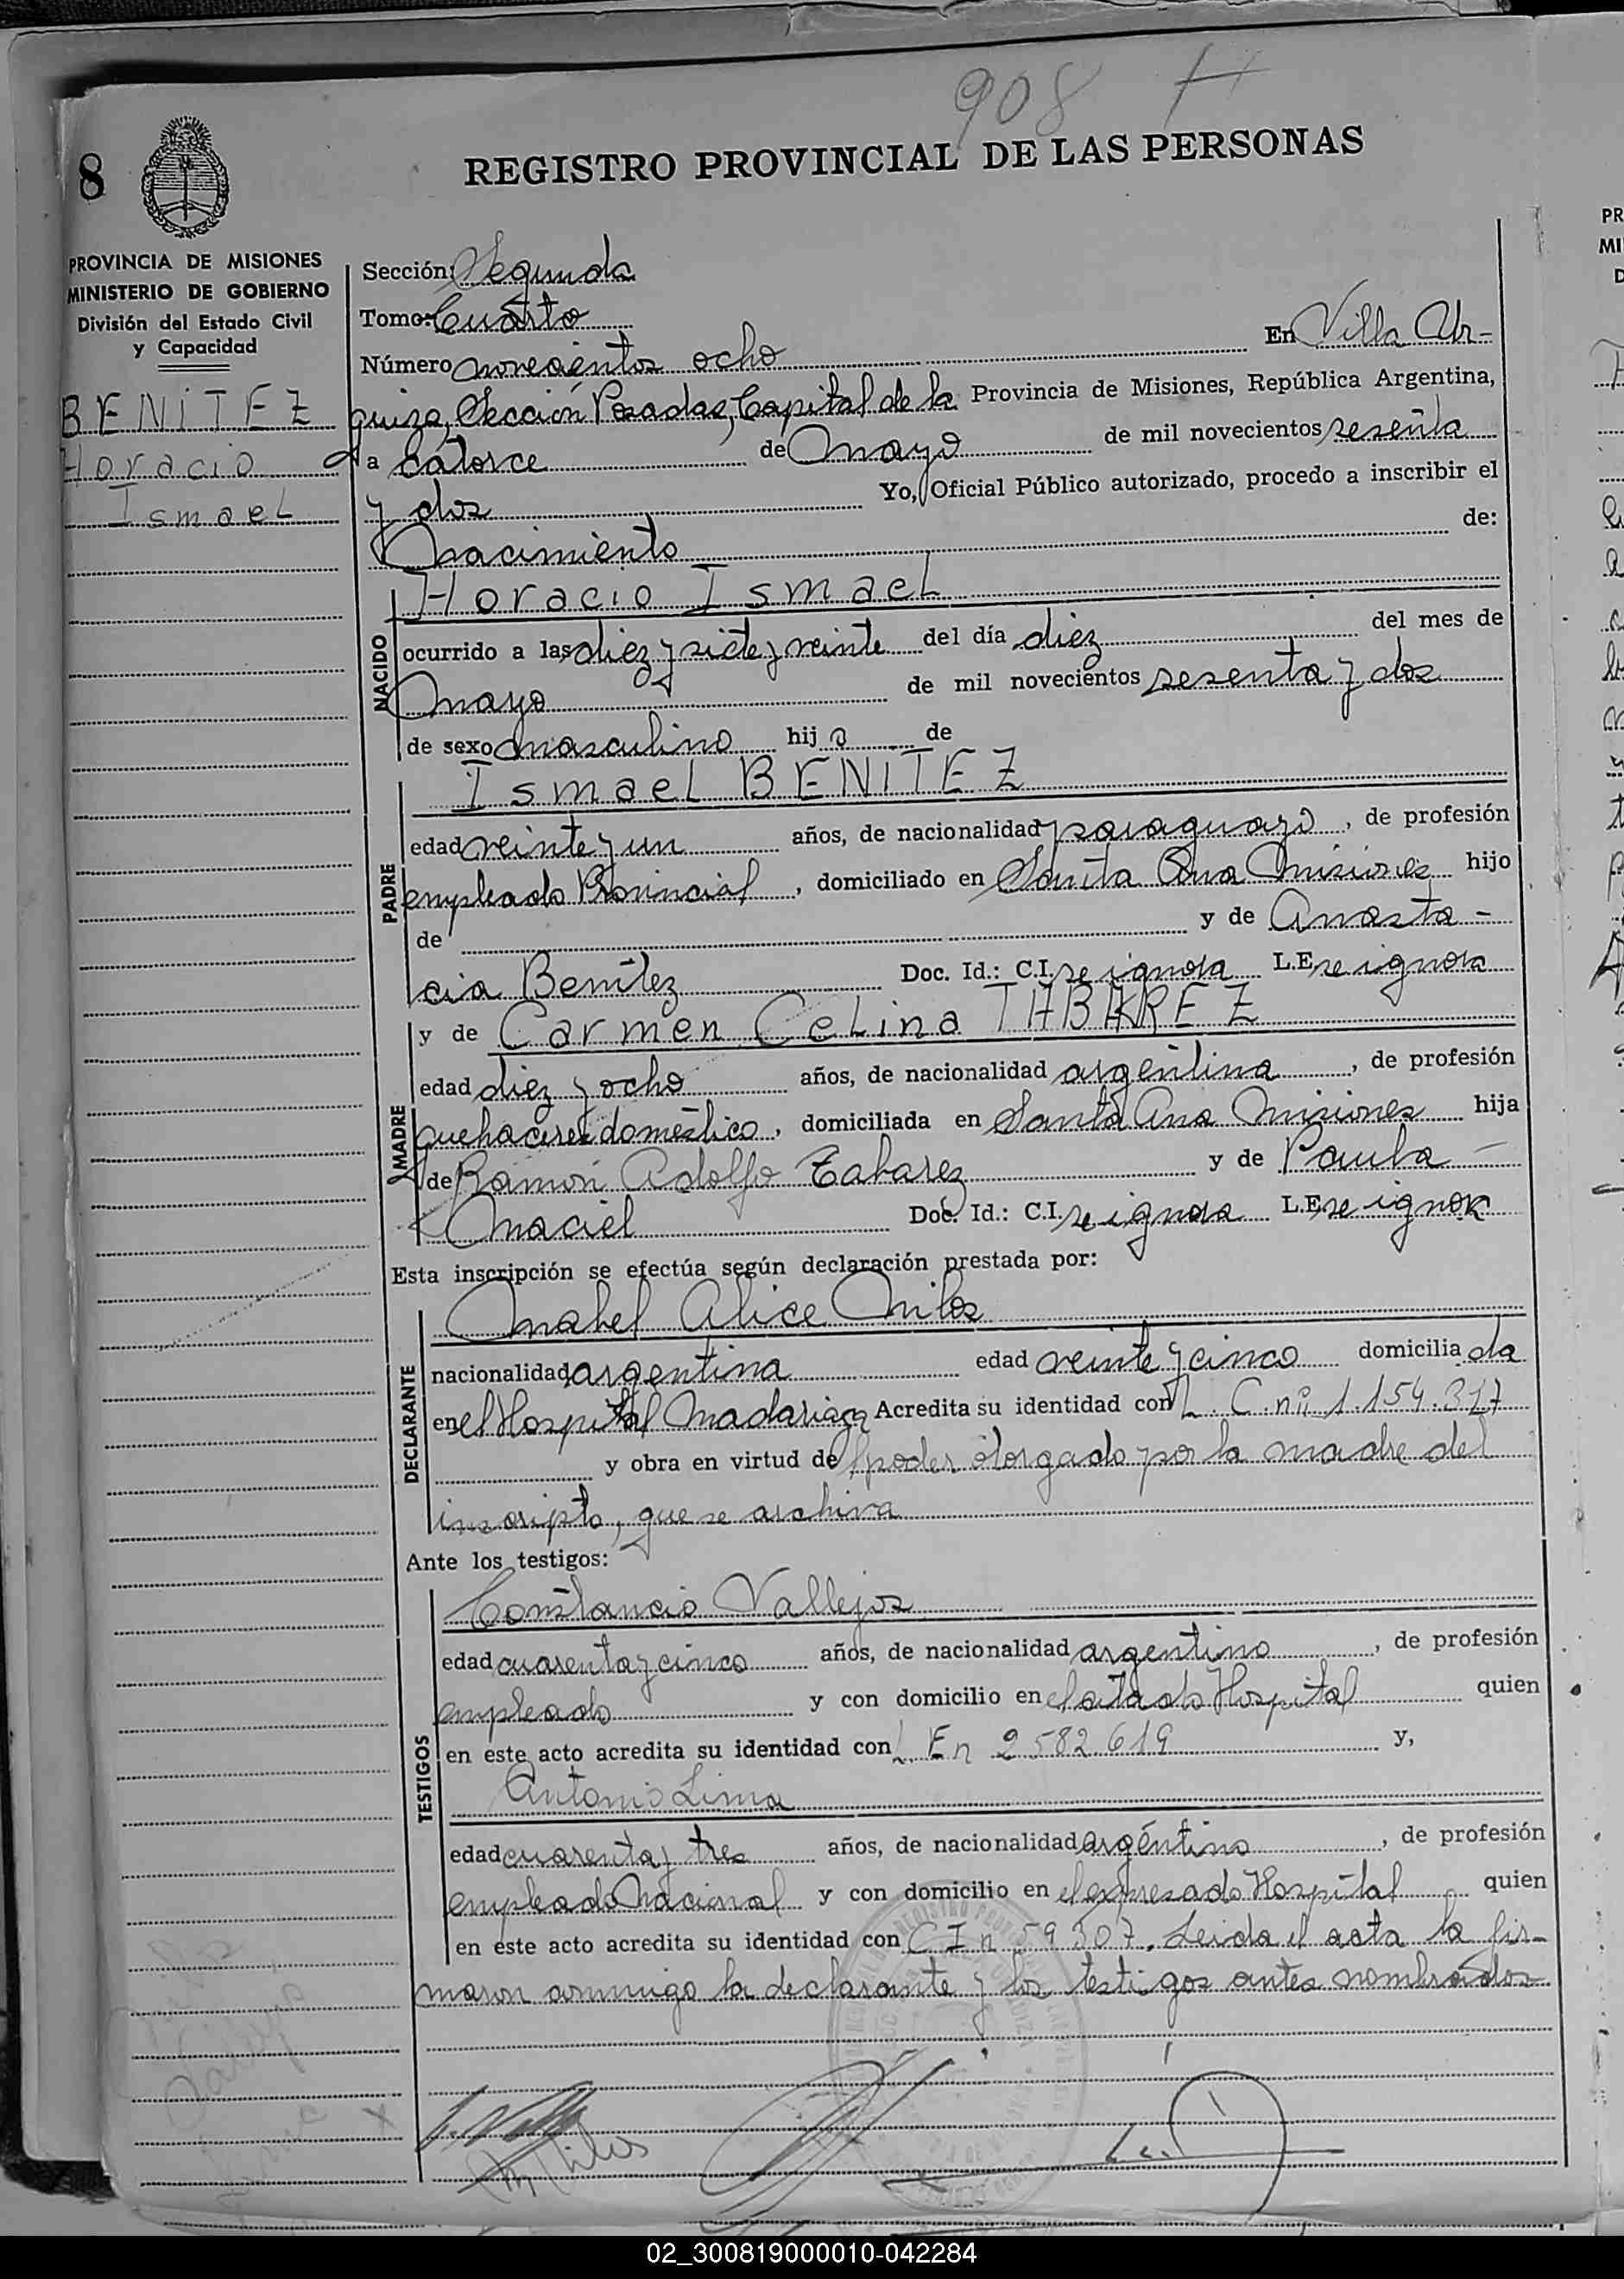 908
8
REGISTRO PROVINCIAL DE LAS PERSONAS
PROVINCIA DE MISIONES
MINISTERIO DE GOBIERNO
División del Estado Civil
y Capacidad
BENITEZ
Horacio
Ismael
Sección: Segunda
Tomo: Cuarto
Número novecientos ocho En Villa Ur-
quiza, Sección Posadas, Capital de la Provincia de Misiones, República Argentina,
a catorce de mayo de mil novecientos sesenta
y dos Yo, Oficial Público autorizado, procedo a inscribir el
nacimiento de:
NACIDO
Horacio Ismael
ocurrido a las diez y siete y veinte del día diez del mes de
mayo de mil novecientos sesenta y dos
de sexo masculino hijo de
PADRE
Ismael BENITEZ
edad veinte y un años, de nacionalidad paraguayo, de profesión
empleado Provincial, domiciliado en Santa Ana Misiones hijo
de y de Anasta-
cia Benitez Doc. Id.: C.I. se ignora L.E. se ignora
MADRE
y de Carmen Celina TABAREZ
edad diez y ocho años, de nacionalidad argentina, de profesión
quehaceres doméstico, domiciliada en Santa Ana Misiones hija
de Ramón Adolfo Tabarez y de Paula
Maciel Doc. Id.: C.I. se ignora L.E. se ignora
Esta inscripción se efectúa según declaración prestada por:
DECLARANTE
Mabel Alice Milos
nacionalidad argentina edad veinte y cinco domiciliada
en el Hospital Madariaga Acredita su identidad con L. C. nº 1.154.317
y obra en virtud de poder otorgado por la madre del
inscripto, que se archiva
Ante los testigos:
TESTIGOS
Constancio Vallejos
edad cuarenta y cinco años, de nacionalidad argentino, de profesión
empleado y con domicilio en el citado Hospital quien
en este acto acredita su identidad con L E n 2582.619 y,
Antonio Lima
edad cuarenta y tres años, de nacionalidad argentino, de profesión
empleado Nacional y con domicilio en el expresado Hospital quien
en este acto acredita su identidad con C I n 59307. Leida el acta la fir-
maron conmigo la declarante y los testigos antes nombrados
02_300819000010-042284